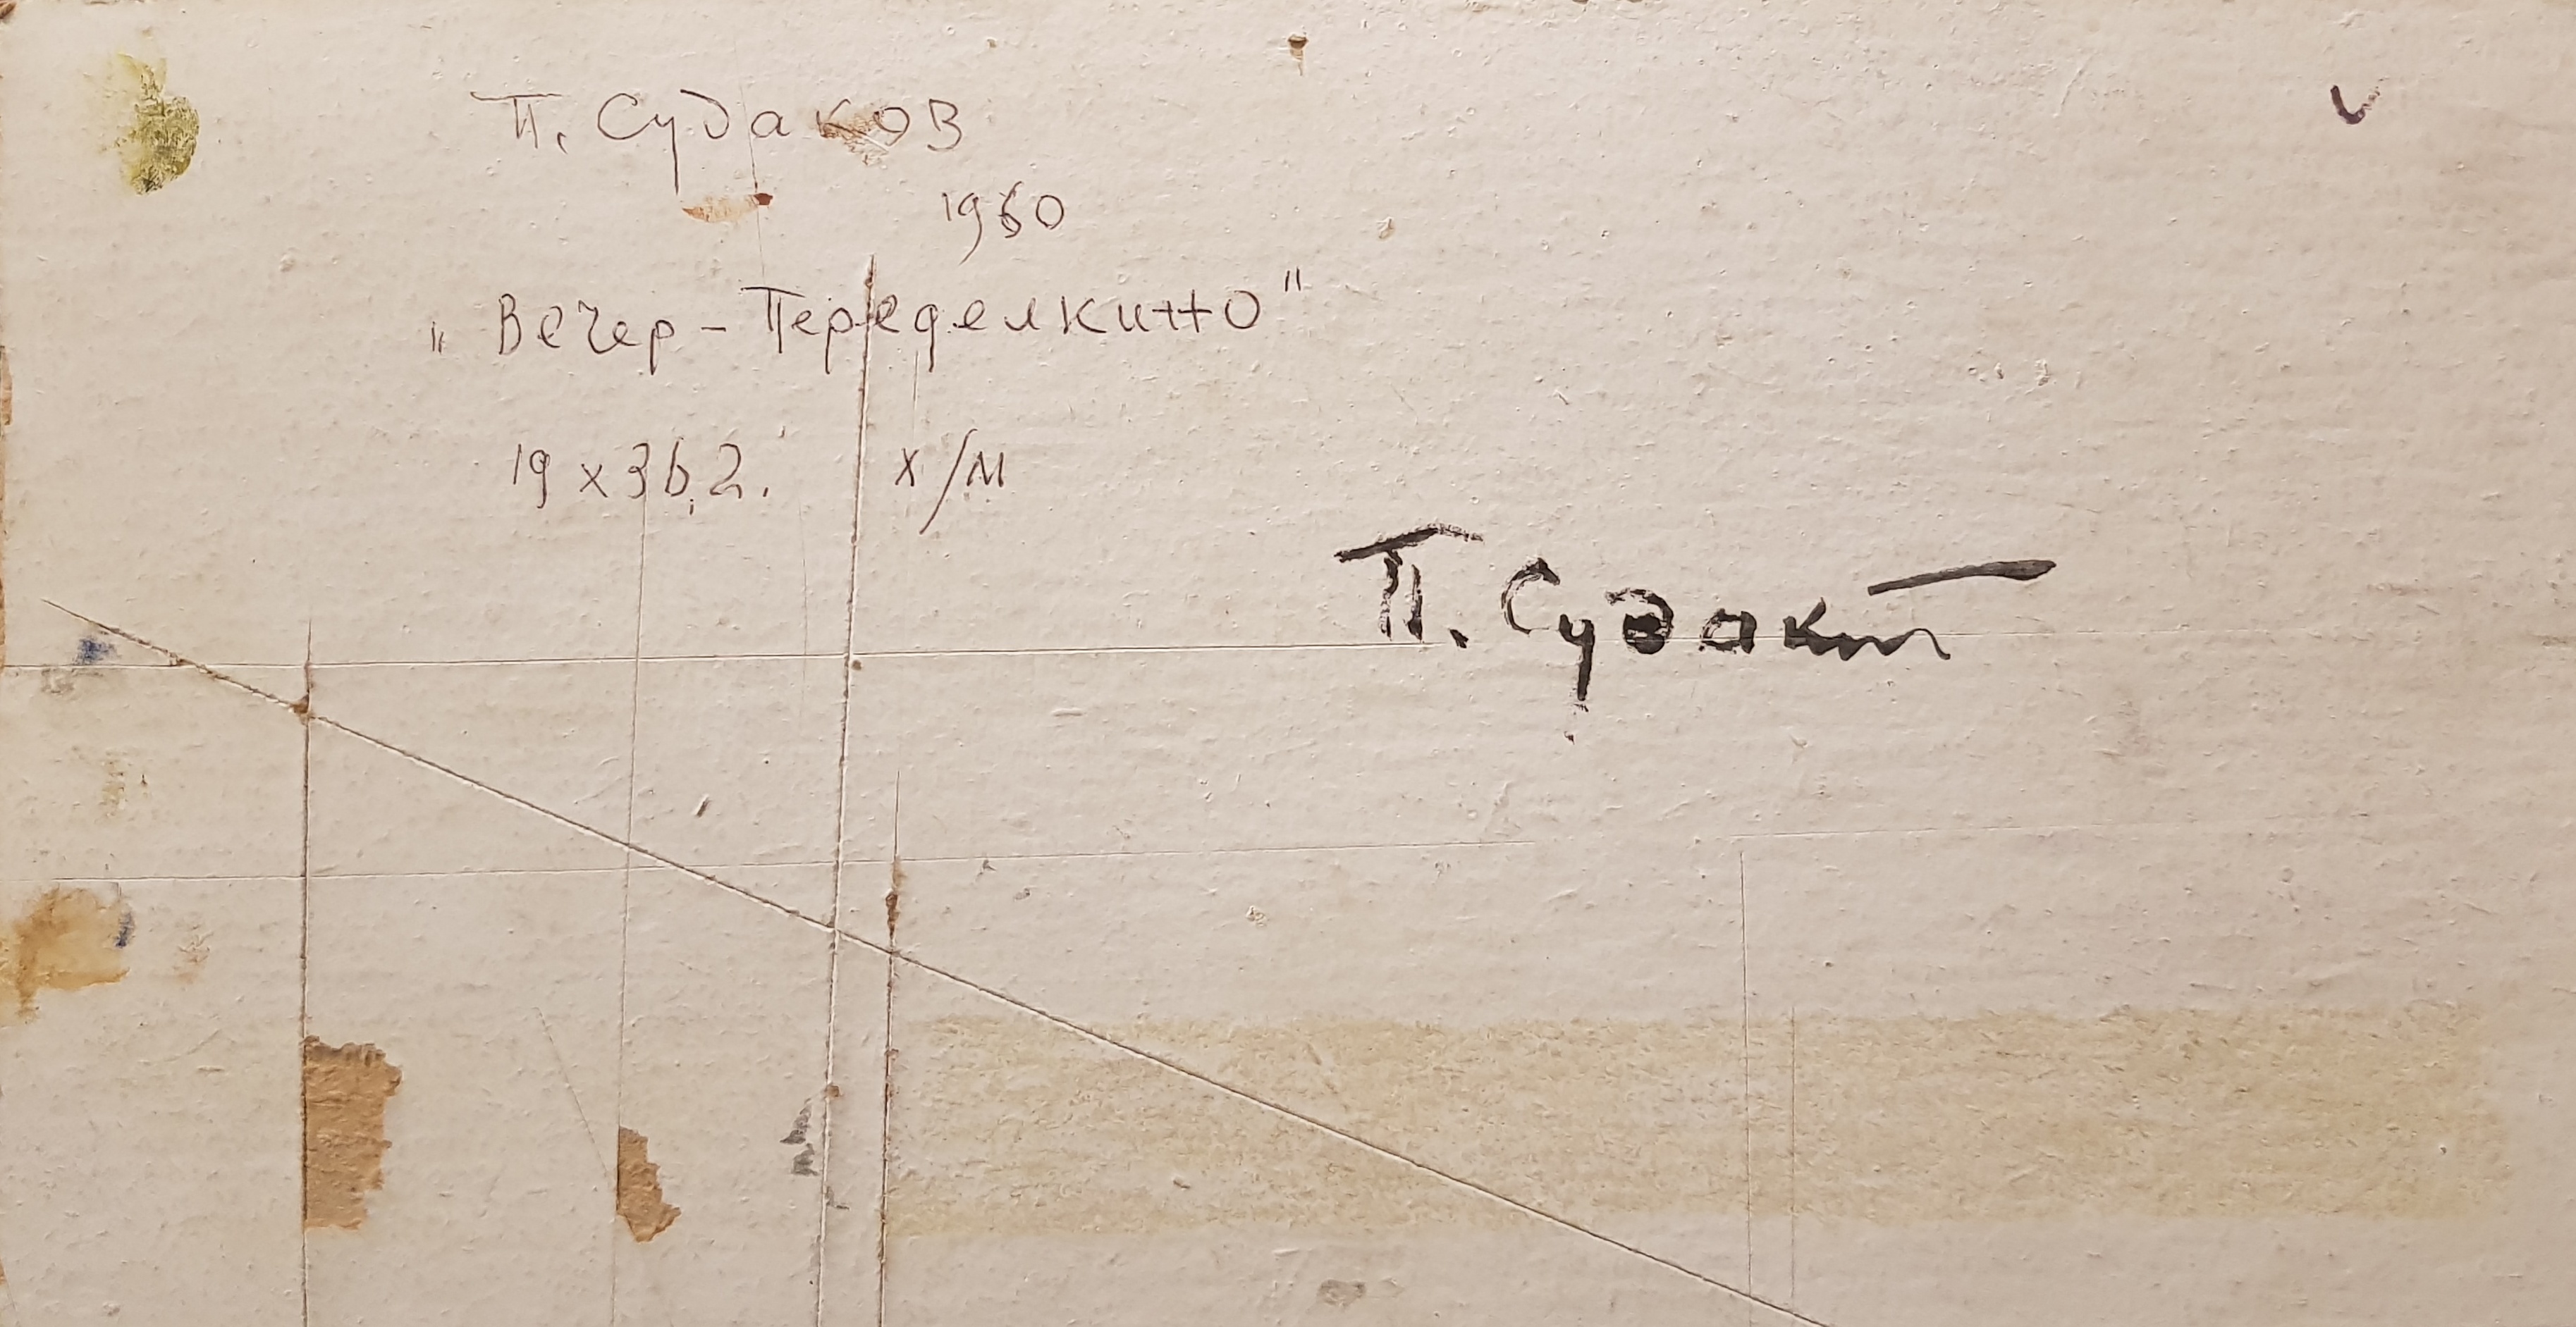 П. Судаков
1960
„Вечер - Переделкино"
19 х 36,2. х/м
П. Судак